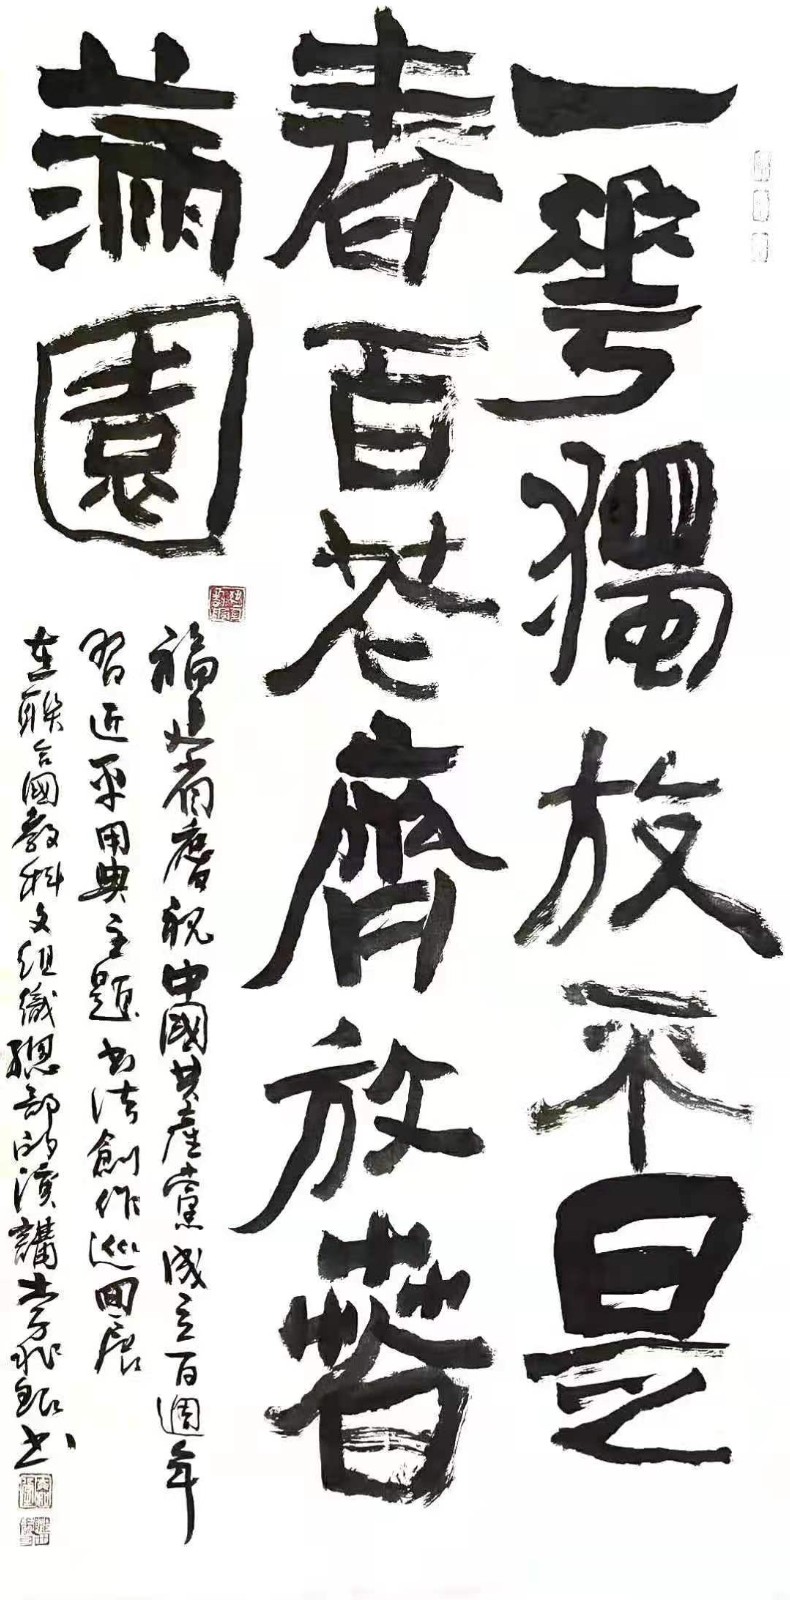 一華獨放不是
春百花齊放春
滿園
福建省慶祝中國共產黨成立百週年
習近平用典主題书法創作巡回展
在聯合國教科文組織總部的演講李兆銀书